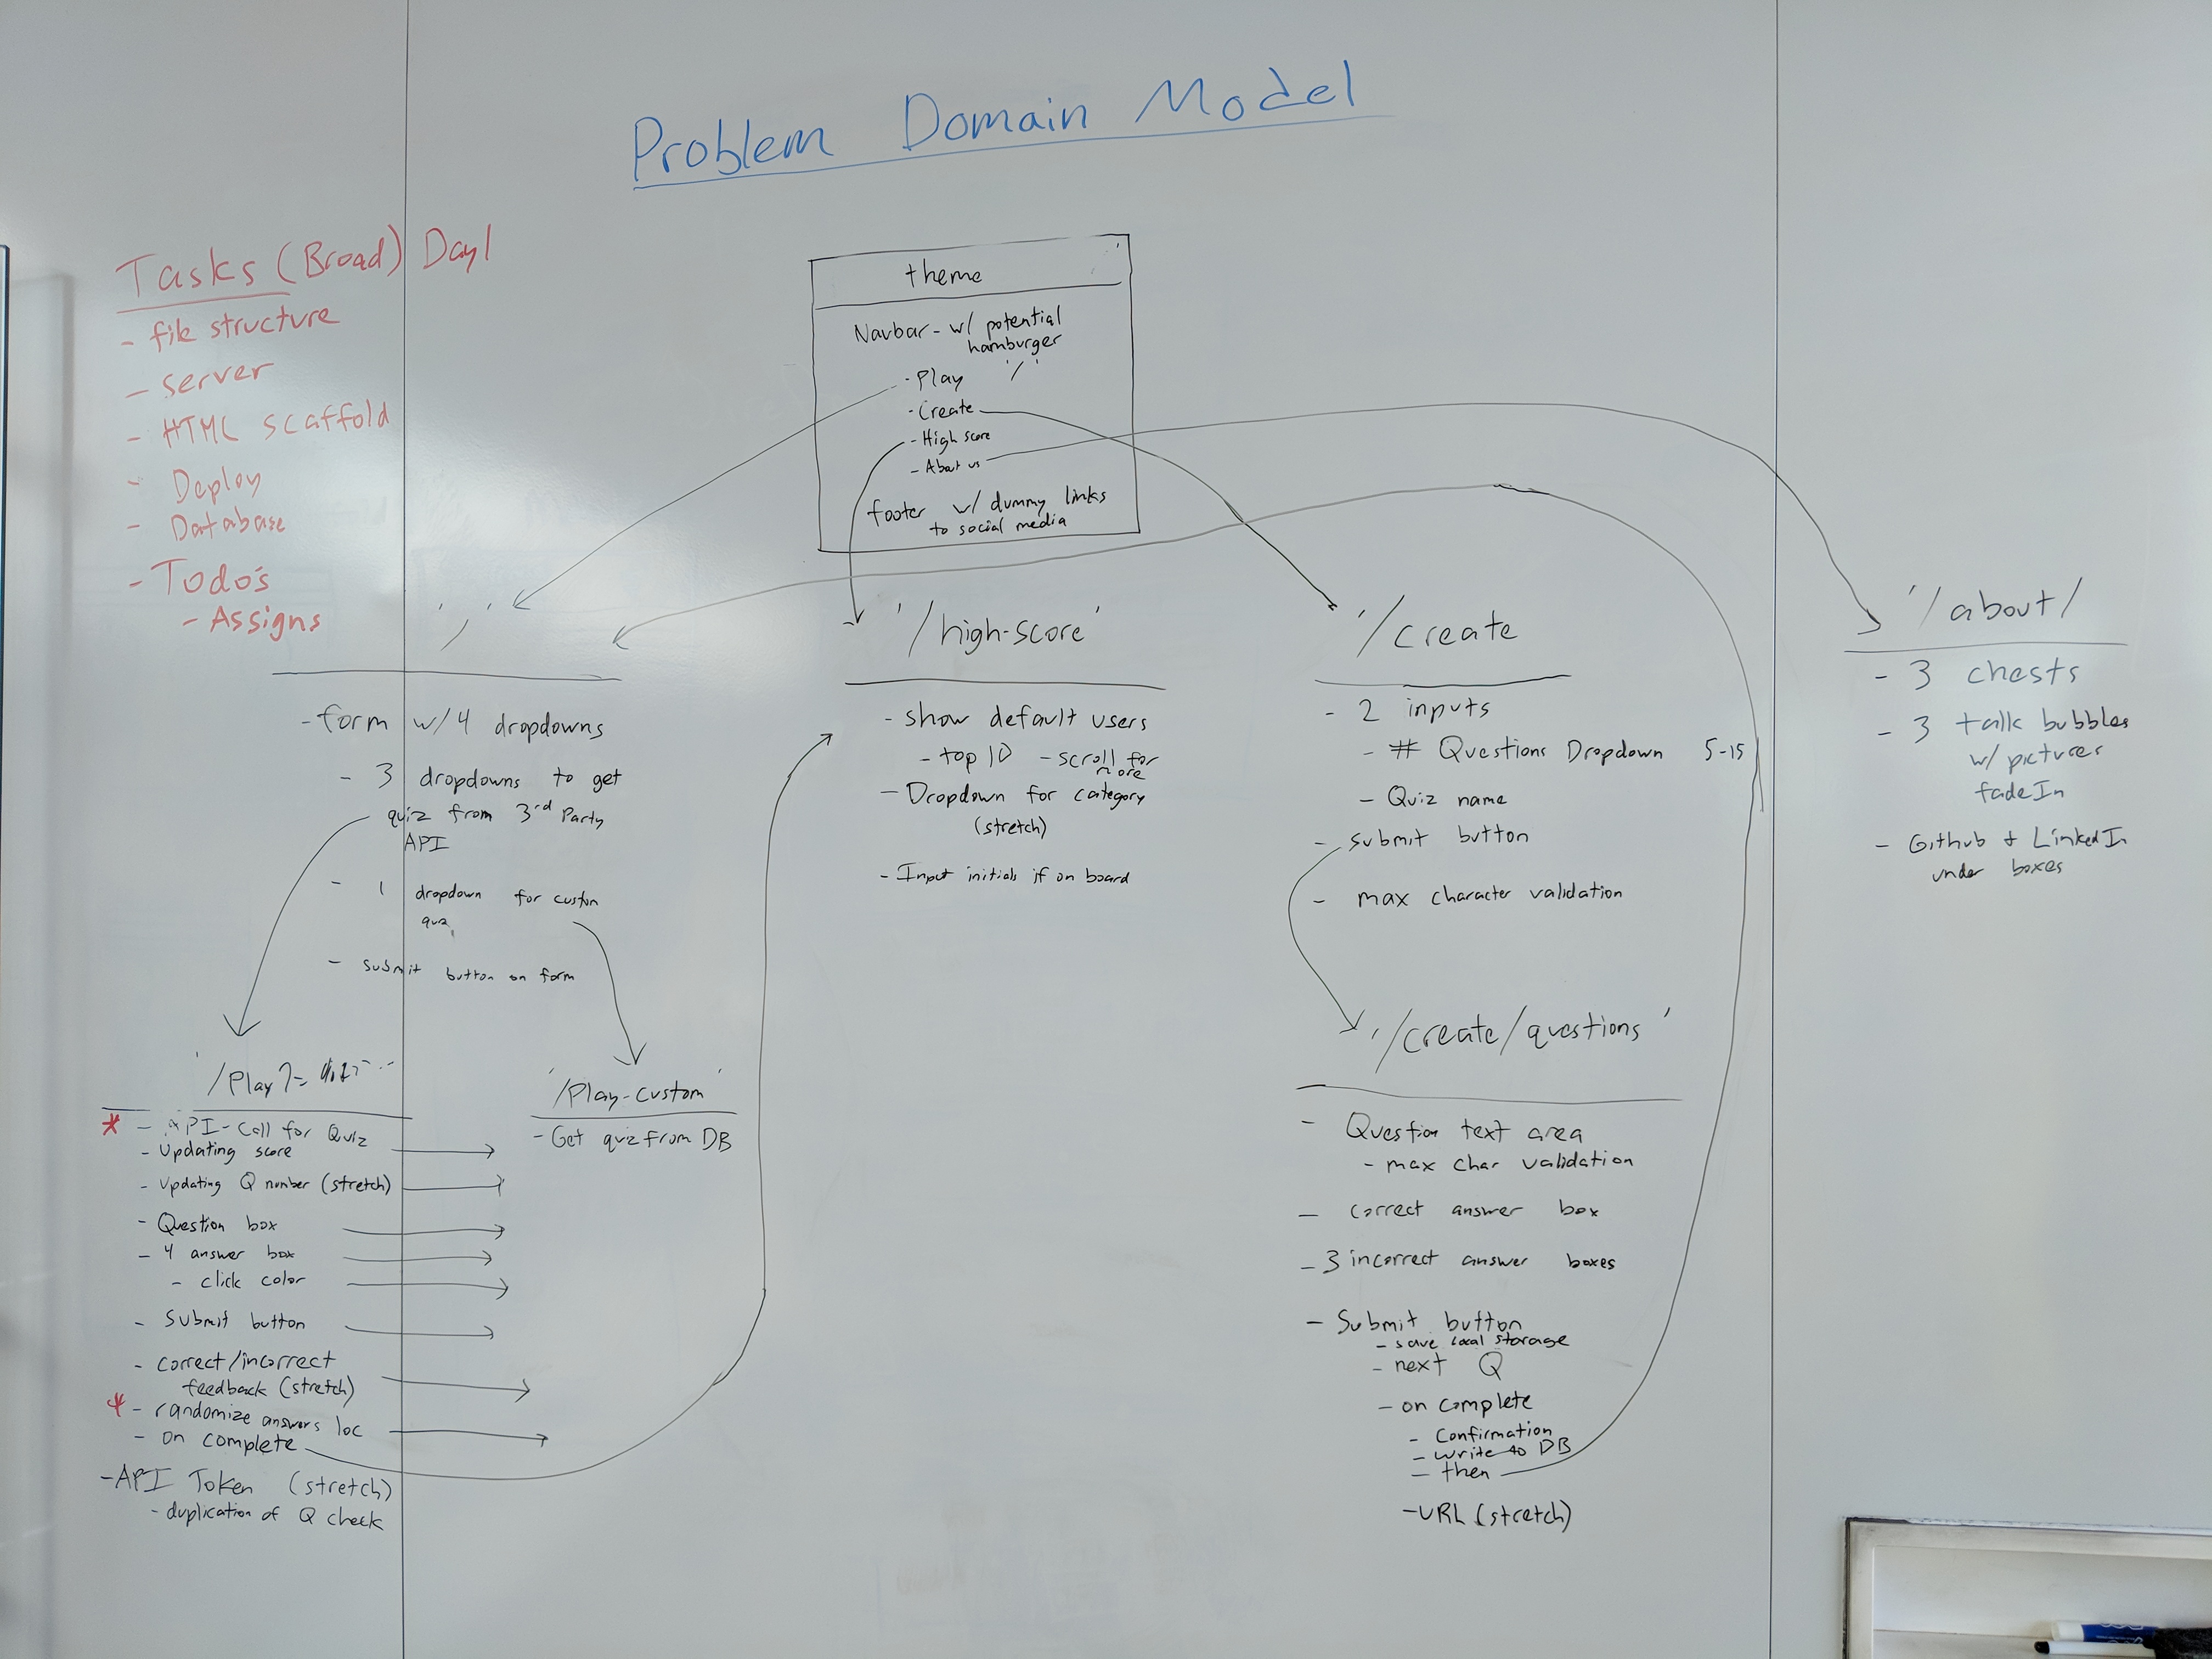 Problem Domain Model
Tasks (Broad) Day 1
- file structure
- server
- HTML scaffold
- Deploy
- Database
- Todo's
- Assigns
theme
Navbar - w/ potential
hamburger
- Play '/'
- Create
- High score
- About us
footer w/ dummy links
to social media
'/'
- form w/ 4 dropdowns
- 3 dropdowns to get
quiz from 3rd Party
API
- 1 dropdown for custom
quiz
- submit button on form
'/Play?=
* - API-Call for Quiz
- Updating score
- Updating Q number (stretch)
- Question box
- 4 answer box
- click color
- Submit button
- correct/incorrect
feedback (stretch)
* - randomize answers loc
- on complete
- API Token (stretch)
- duplication of Q check
'/Play-custom'
- Get quiz from DB
'/high-score'
- show default users
- top 10 - scroll for
more
- Dropdown for category
(stretch)
- Input initials if on board
'/create
- 2 inputs
- # Questions Dropdown 5-15
- Quiz name
- submit button
- max character validation
'/create/questions'
- Question text area
- max char validation
- correct answer box
- 3 incorrect answer boxes
- Submit button
- save local storage
- next Q
- on complete
- Confirmation
- write to DB
- then
- URL (stretch)
'/about/
- 3 chests
- 3 talk bubbles
w/ pictures
fadeIn
- Github + LinkedIn
under boxes